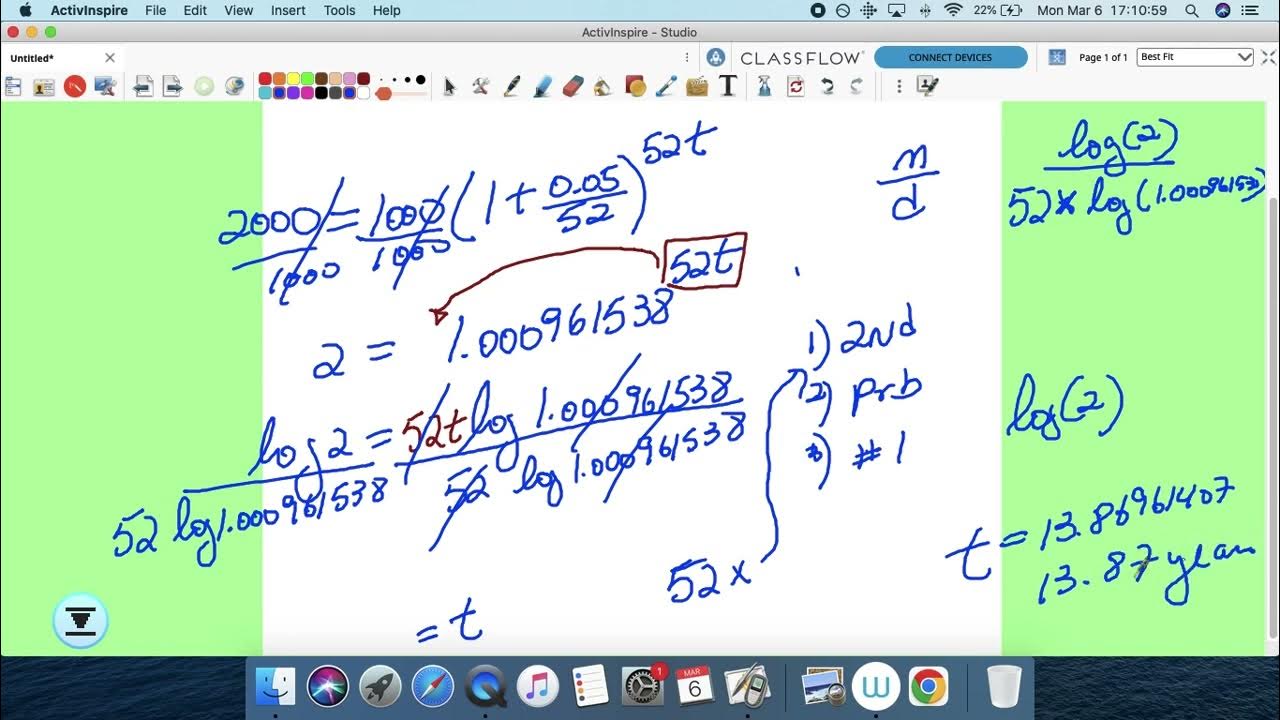 ActivInspire File Edit View Insert Tools Help 22% Mon Mar 6 17:10:59
ActivInspire - Studio
Untitled*
CLASSFLOW CONNECT DEVICES Page 1 of 1 Best Fit
T
2000/1000 = 1000/1000 (1 + 0.05/52)^52t
2 = 1.000961538^52t
log 2 / 52 log 1.000961538 = 52t log 1.000961538 / 52 log 1.000961538
= t
52 x
n/d
1) 2nd
2) prb
3) # 1
log(2)
52 x log(1.00096153)
log(2)
t = 13.86961407
13.87 years
1
MAR
6
W